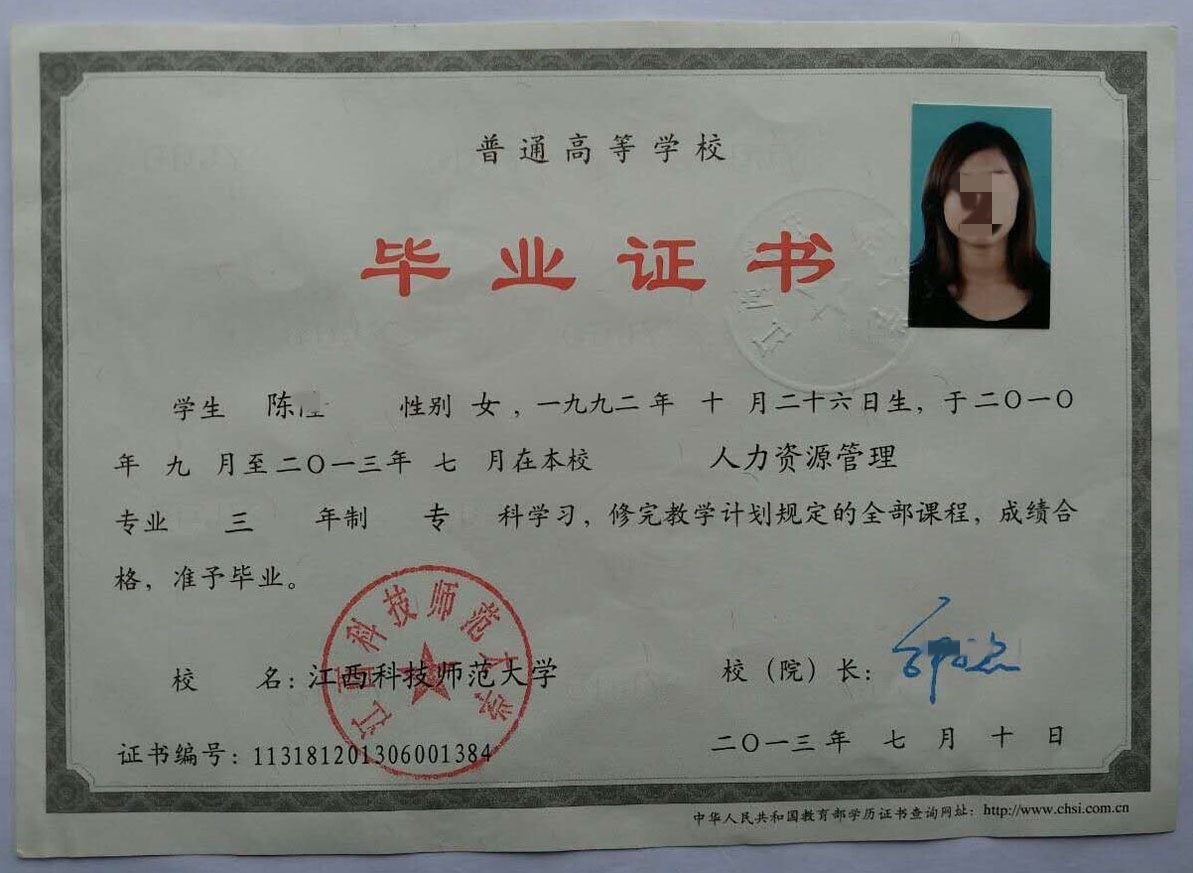 普通高等学校
毕业证书
学生 陈 性别 女，一九九二年 十 月二十六日生，于二〇一〇
年 九 月至二〇一三年 七 月在本校 人力资源管理
专业 三 年制 专 科学习，修完教学计划规定的全部课程，成绩合
格，准予毕业。
江西科技师范大学
校 名：江西科技师范大学
校（院）长：
证书编号：113181201306001384
二〇一三年 七 月 十 日
中华人民共和国教育部学历证书查询网址：http://www.chsi.com.cn